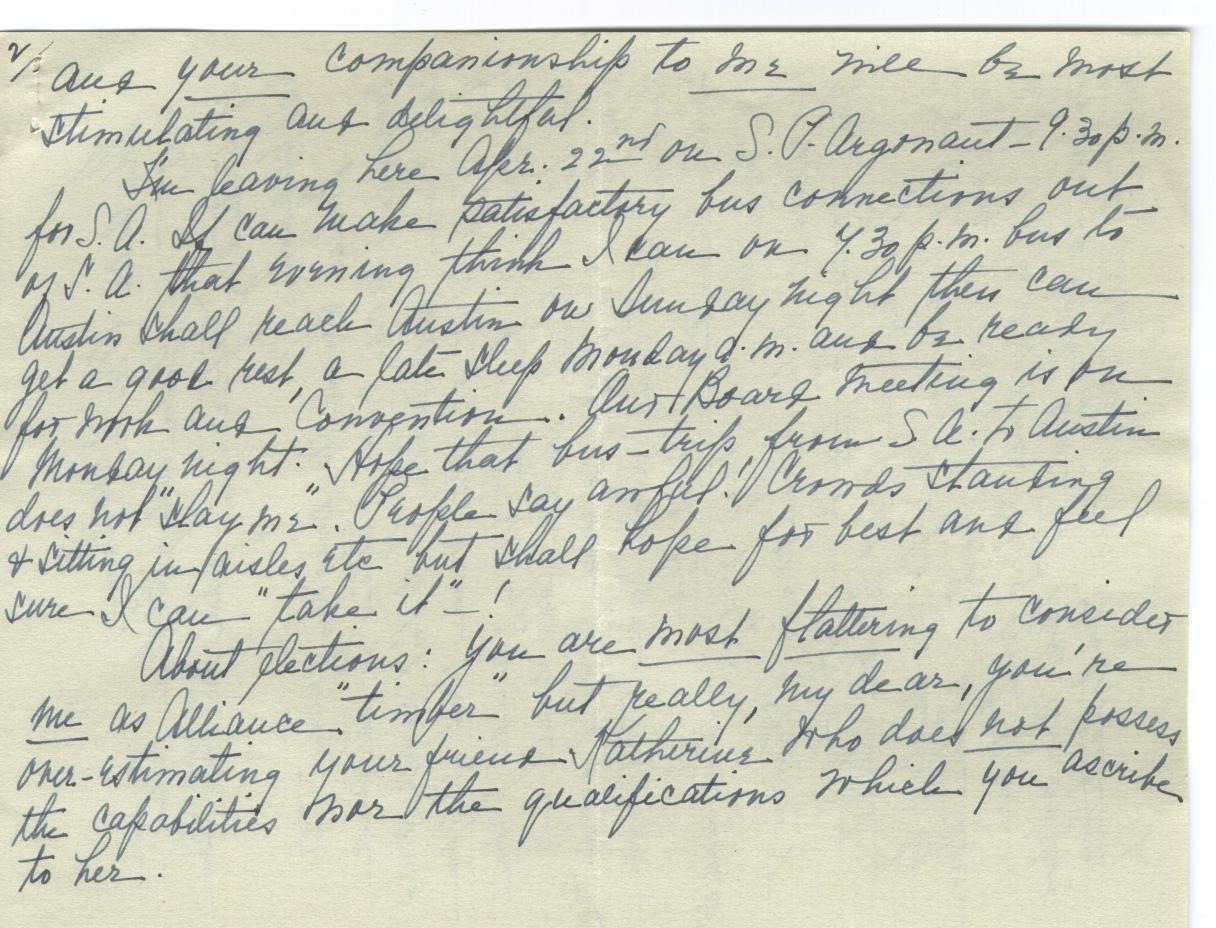 2/
and your companionship to me will be most
stimulating and delightful.
I'm leaving here Apr. 22nd on S. P. Argonaut - 9.30 p.m.
for S. A. If can make satisfactory bus connections out
of S. A. that evening think I can on 7.30 p.m. bus to
Austin shall reach Austin on Sunday night then can
get a good rest, a late sleep Monday a.m. and be ready
for work and Convention. Our Board meeting is on
Monday night. Hope that bus-trip from S. A. to Austin
does not "slay me". People say awful! Crowds standing
& sitting in aisles etc but shall hope for best and feel
sure I can "take it" -!
About elections: you are most flattering to consider
me as Alliance "timber" but really, my dear, you're
over-estimating your friend Katherine who does not possess
the capabilities nor the qualifications which you ascribe
to her.